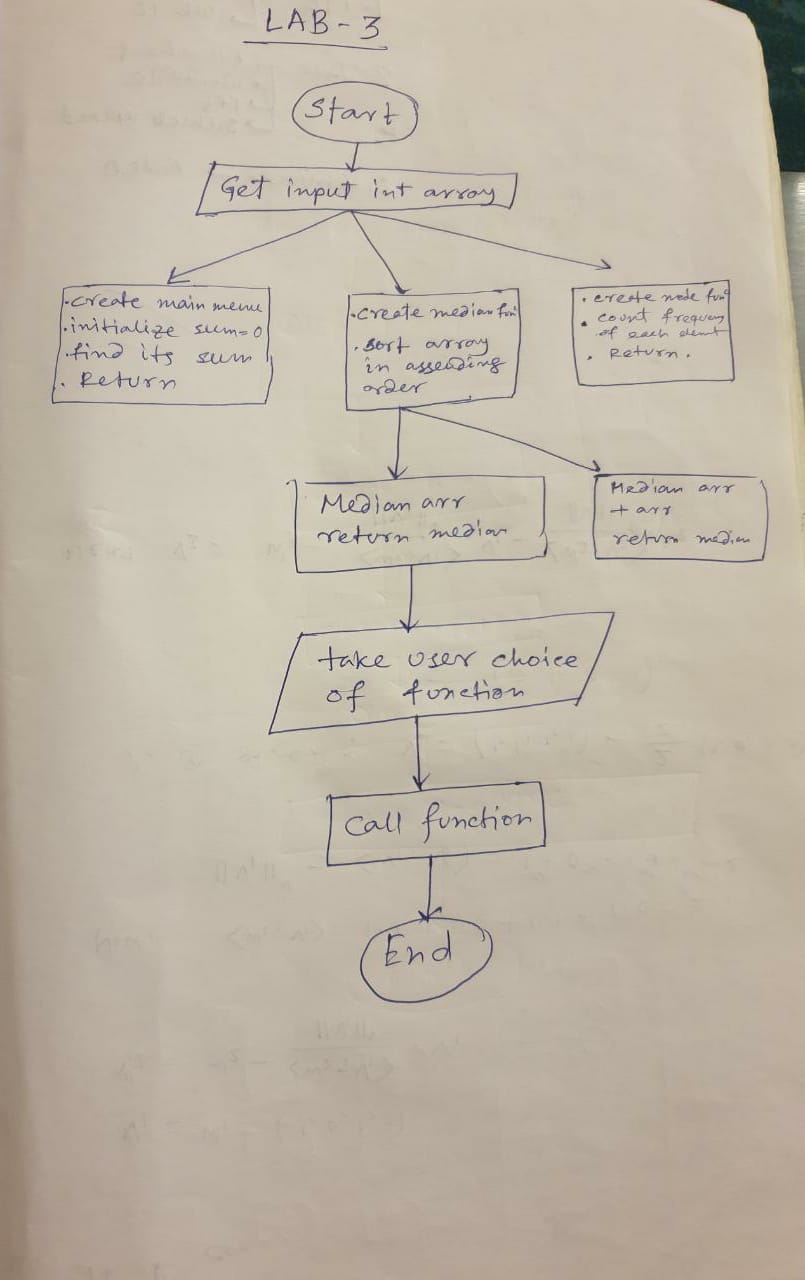 LAB-3
Start
Get input int array
.create main menu
.initialize sum=0
.find its sum
. Return
.create median fun
. sort array
in assending
order
. create mode fun
. count frequency
of each
. Return.
Median arr
return median
Median arr
+ arr
return median
take user choice
of function
call function
End